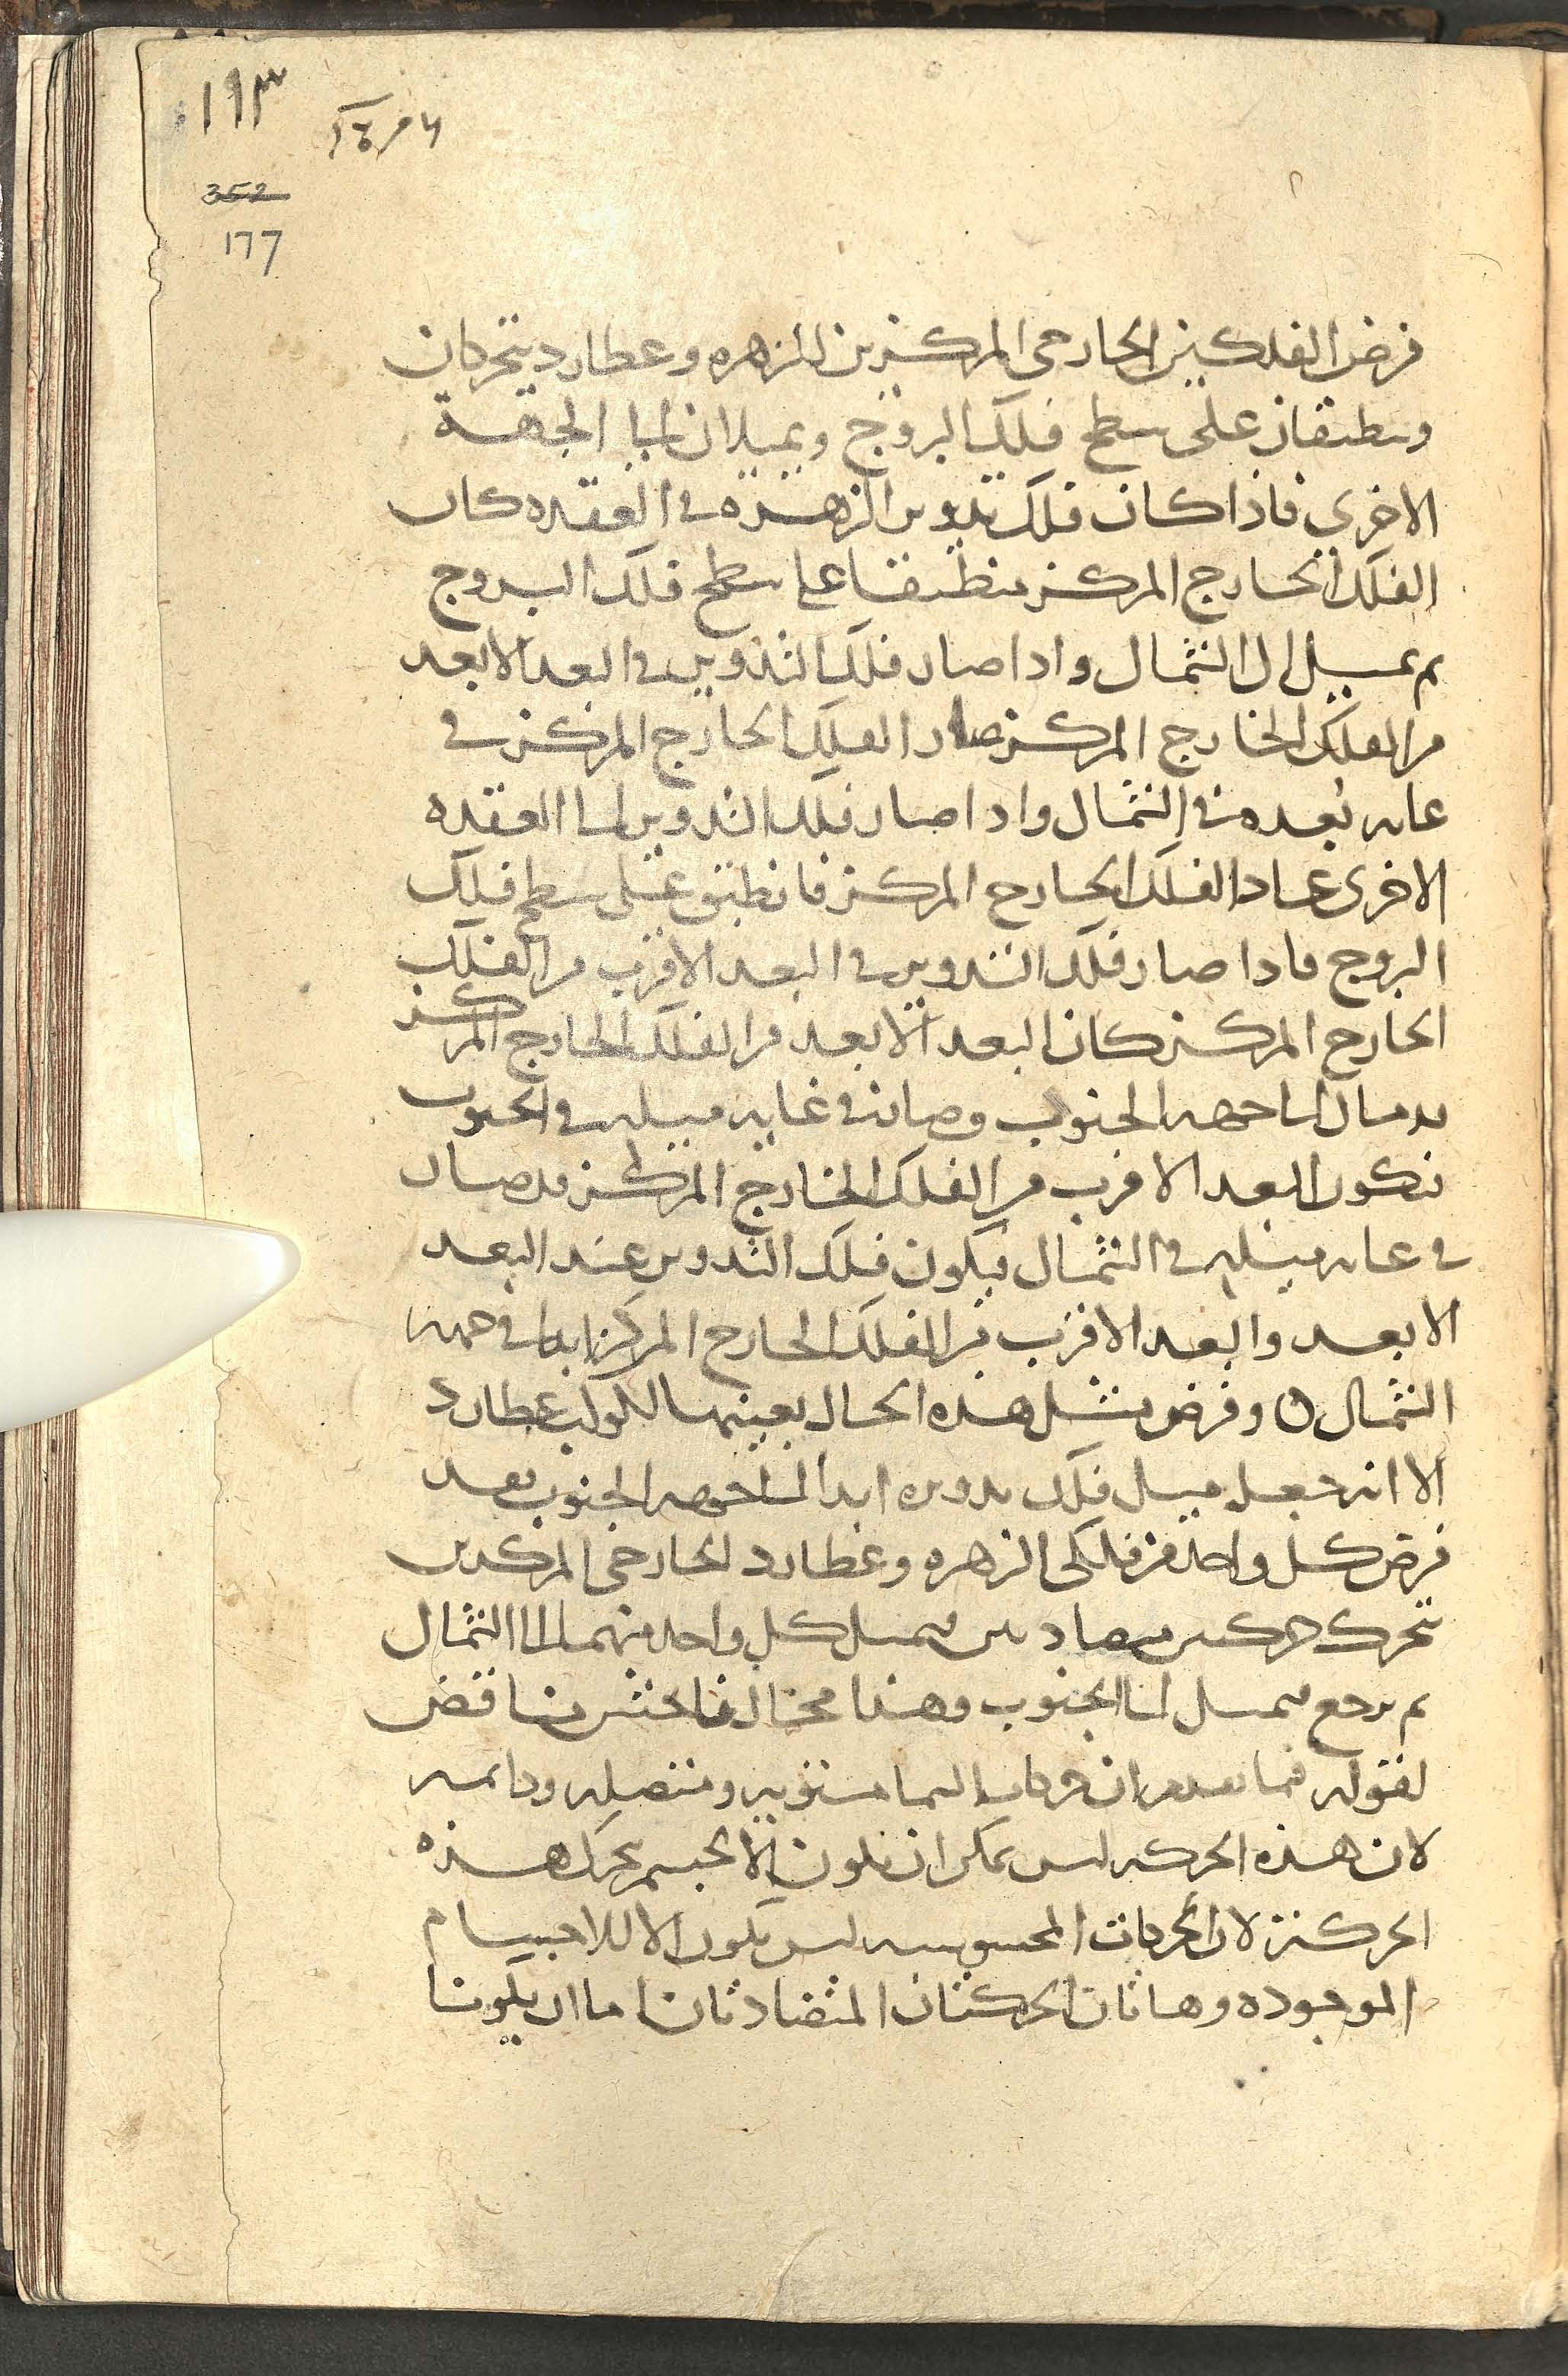 ١٩٣
352
177
فرض الفلكين الخارجى المركزين للزهره وعطارد يتحركان
وينطبقان على سطح فلك البروج ويميلان الى الجهة
الاخرى فاذا كان فلك تدوير الزهره فى العقده كان
الفلك الخارج المركز منطبقا على سطح فلك البروج
ثم يميل الى الشمال واذا صار فلك التدوير فى البعد الابعد
من الفلك الخارج المركز صار الفلك الخارج المركز فى
غايه بُعده فى الشمال واذا صار فلك التدوير الى العقده
الاخرى عاد الفلك الخارج المركز فانطبق على سطح فلك
البروج فاذا صار فلك التدوير فى البعد الاقرب من الفلك
الخارج المركز كان البعد الابعد من الفلك الخارج المركز
قد مال الى جهه الجنوب وصار فى غايه ميله فى الجنوب
فيكون البعد الاقرب من الفلك الخارج المركز قد صار
فى غايه ميله فى الشمال فيكون فلك التدوير عند البعد
الابعد والبعد الاقرب من الفلك الخارج المركز ابدا فى جهه
الشمال ۞ وفرض مثل هذه الحال بعينها لكوكب عطارد
الا انه جعل ميل فلك تدويره ابدا الى جهه الجنوب فقد
فرض كل واحد من فلكى الزهره وعطارد الخارجى المركزين
يتحرك حركتين متضادتين فيميل كل واحد منهما الى الشمال
ثم يرجع فيميل الى الجنوب وهذا محال فاحش مناقض
لقوله فيما تقدم ان حركات السما مستويه ومتصله ودايمه
لان هذه الحركه ليس يمكن ان تكون الا لجسم يتحرك هذه
الحركة لان الحركات المحسوسه ليس تكون الا للاجسام
الموجوده وهاتان الحركتان المتضادتان اما ان يكونا